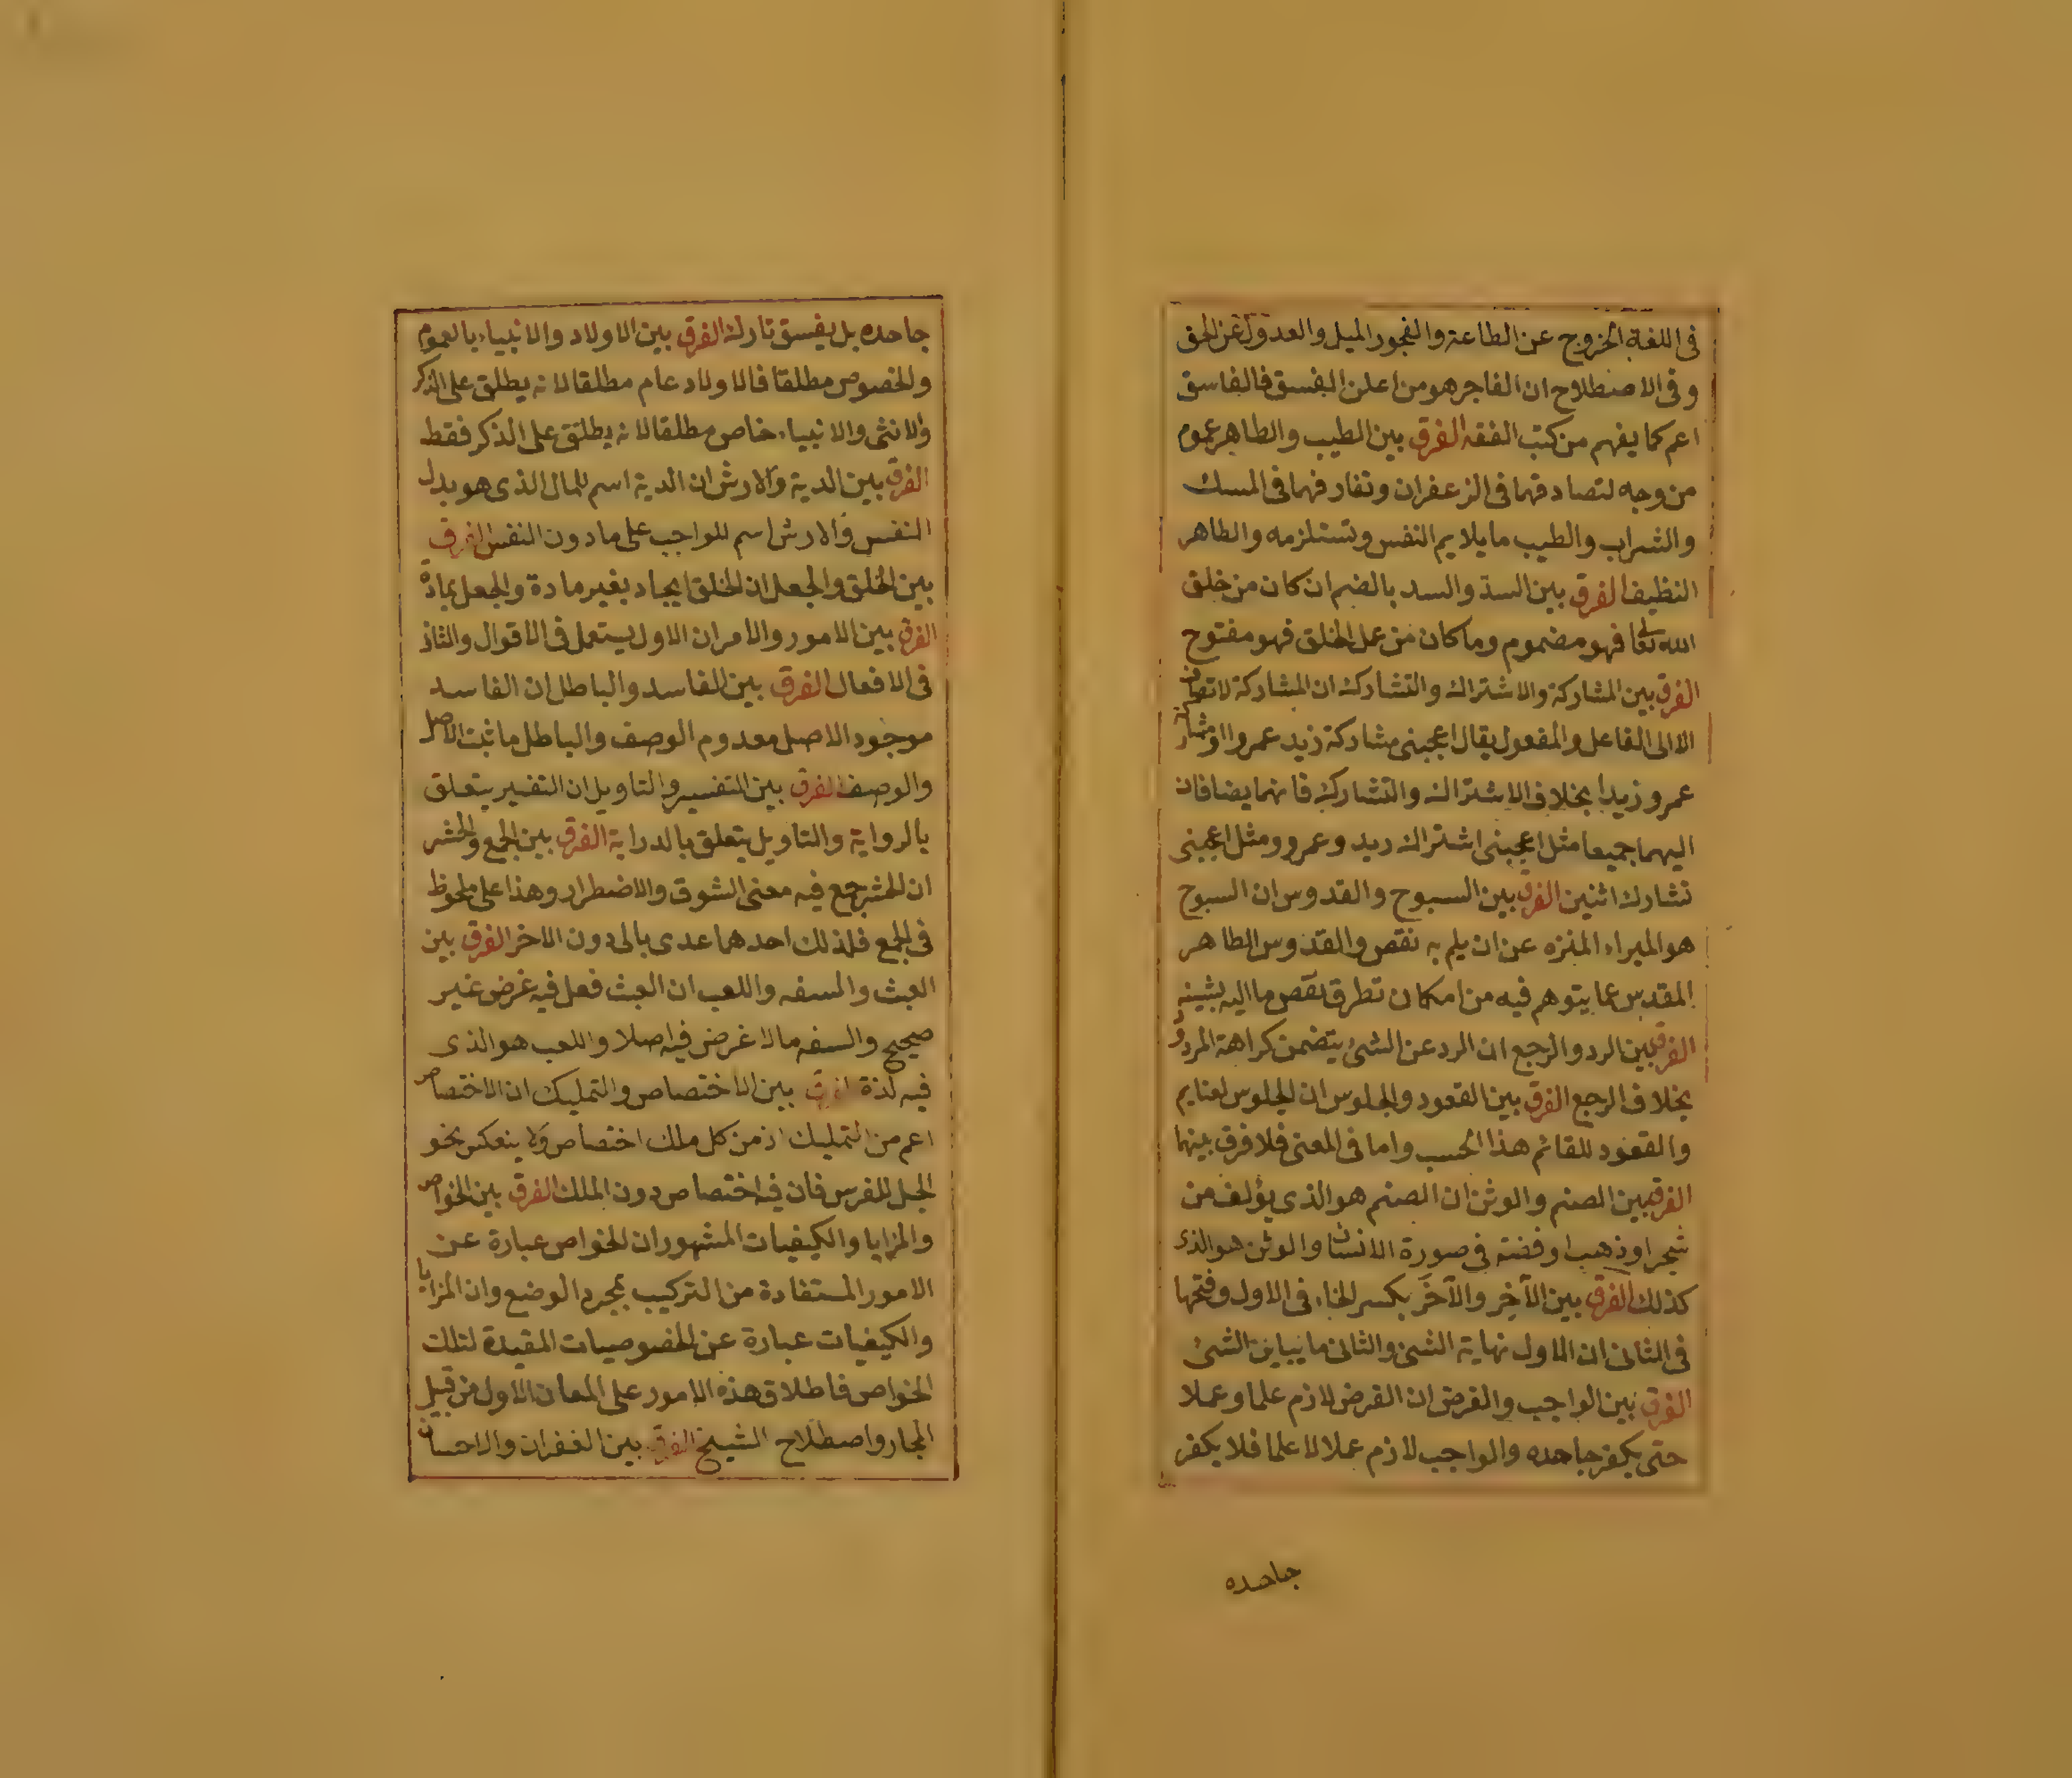 فى اللغة الخروج عن الطاعة والفجور الميل والعدول عن الحق
وفى الاصطلاح ان الفاجر هو من اعلن الفسق فالفاسق
اعم كما يفهم من كتب الفقه الفرق بين الطيب والطاهر عموم
من وجه لتصادقهما فى الزعفران وتفارقهما فى المسك
والشراب والطيب ما يلايم النفس وتستلزمه والطاهر
النظيف الفرق بين السد والسد بالضم ان كان من خلق
الله تعا فهو مضموم وما كان من عمل الخلق فهو مفتوح
الفرق بين المشاركة والاشتراك والتشارك ان المشاركة لا تضاف
الا الى الفاعل والمفعول يقال اعجبنى مشاركة زيد عمروا او مشاركة
عمرو زيدا بخلاف الاشتراك والتشارك فانهما يضافان
اليهما جميعا مثل اعجبنى اشتراك زيد وعمرو ومثل اعجبنى
تشارك اثنين الفرق بين السبوح والقدوس ان السبوح
هو المبراء المنزه عن ان يلم به نقص والقدوس الطاهر
المقدس عما يتوهم فيه من امكان تطرق نقص ما اليه يشينه
الفرق بين الرد والرجع ان الرد عن الشئ يتضمن كراهة المردود
بخلاف الرجع الفرق بين القعود والجلوس ان الجلوس لنايم
والقعود للقائم هذا الحسب واما فى المعنى فلا فرق بينهما
الفرق بين الصنم والوثن ان الصنم هو الذى يؤلف من
شجر او ذهب او فضة فى صورة الانسان والوثن هو الذى
كذلك الفرق بين الآخِر والآخَر بكسر الخاء فى الاول وفتحها
فى الثانى ان الاول نهاية الشئ والثانى ما يباين الشئ
الفرق بين الواجب والفرض ان الفرض لازم علما وعملا
حتى يكفر جاحده والواجب لازم عملا لا علما فلا يكفر
جاحده
جاحده بل يفسق تاركه الفرق بين الاولاد والانبياء بالعموم
والخصوص مطلقا فالاولاد عام مطلقا لانه يطلق على الذكر
والانثى والانبياء خاص مطلقا لانه يطلق على الذكر فقط
الفرق بين الدية والارش ان الدية اسم للمال الذى هو بدل
النفس والارش اسم للواجب على ما دون النفس الفرق
بين الخلق والجعل ان الخلق ايجاد بغير مادة والجعل بمادة
الفرق بين الامور والامر ان الاول يستعمل فى الاقوال والثانى
فى الافعال الفرق بين الفاسد والباطل ان الفاسد
موجود الاصل معدوم الوصف والباطل ما ثبت الاصل
والوصف الفرق بين التفسير والتاويل ان التفسير يتعلق
بالرواية والتاويل يتعلق بالدراية الفرق بين الجمع والحشر
ان الحشر جمع فيه معنى الشوق والاضطرار وهذا على ملحوظ
فى الجمع فلذلك احدهما عدى بالى دون الاخر الفرق بين
العبث والسفه واللعب ان العبث فعل فيه غرض غير
صحيح والسفه مالا غرض فيه اصلا واللعب هو الذى
فيه لذة الفرق بين الاختصاص والتمليك ان الاختصاص
اعم من التمليك اذ من كل ملك اختصاص ولا ينعكس نحو
الجبل للفرس فان فيه اختصاص دون الملك الفرق بين الخواص
والمزايا والكيفيات المشهور ان الخواص عبارة عن
الامور المستفادة من التركيب بمجرد الوضع وان المزايا
والكيفيات عبارة عن الخصوصيات المقيدة لتلك
الخواص فاطلاق هذه الامور على المعان الاول من قبيل
المجاز واصطلاح الشيخ الفرق بين الغفران والاحسان